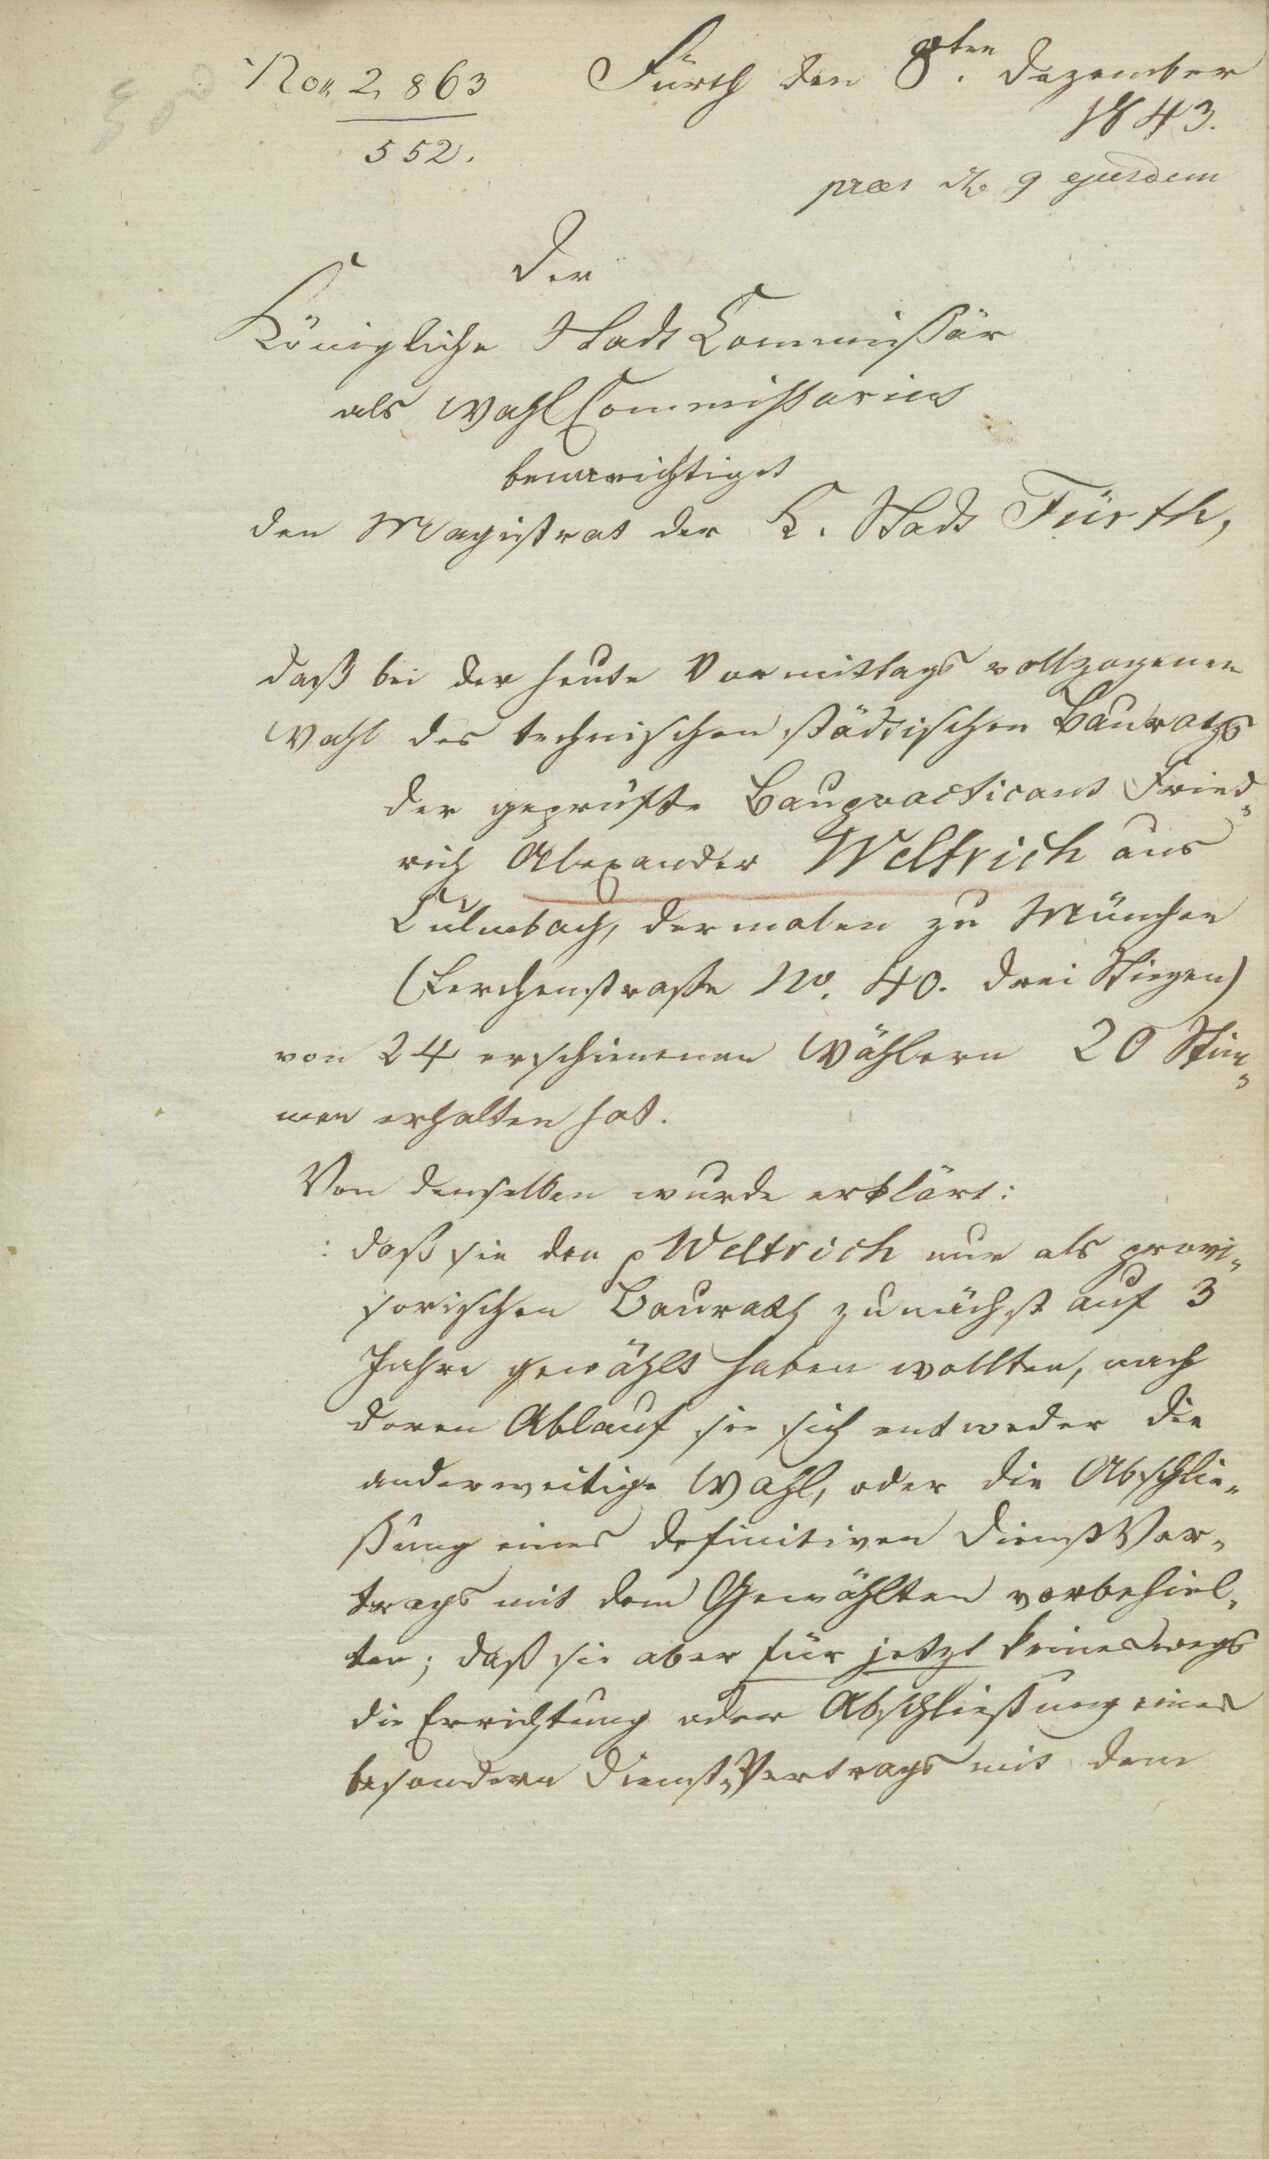 No. 2863
552.
Fürth den 8ten. Dezember
1843.
praes d. 9 ejusdem
Der
Königliche Stadt Commißär
als Wahl Commißarius
benarichtiget
den Magistrat der K. Stadt Fürth,
daß bei der heute Vormittags vollzogenen
Wahl des technischen städtischen Bauraths
der geprüfte Baupracticant Fried„
rich Alexander Weltrich aus
Culmbach, dermalen zu München
(Lerchenstraße No. 40. drei Stiegen)
von 24 erschienenen Wählern 20 Stim„
men erhalten hat.
Von denselben wurde erklärt:
: daß sie den p Weltrich nur als provi„
sorischen Baurath zunächst auf 3
Jahre gewählt haben wollten, nach
deren Ablauf sie sich entweder die
anderweitige Wahl, oder die Abschlie„
ßung eines definitiven Dienst Ver„
trags mit dem Gewählten vorbehiel„
ten; daß sie aber für jetzt keineswegs
die Errichtung oder Abschließung eines
besondern Dienst„Vertrags mit dem